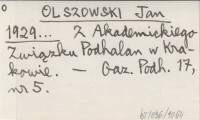 OLSZOWSKI Jan
1929... Z Akademickiego
Związku Podhalan w Kra-
kowie. — Gaz. Podh. 17,
nr 5.